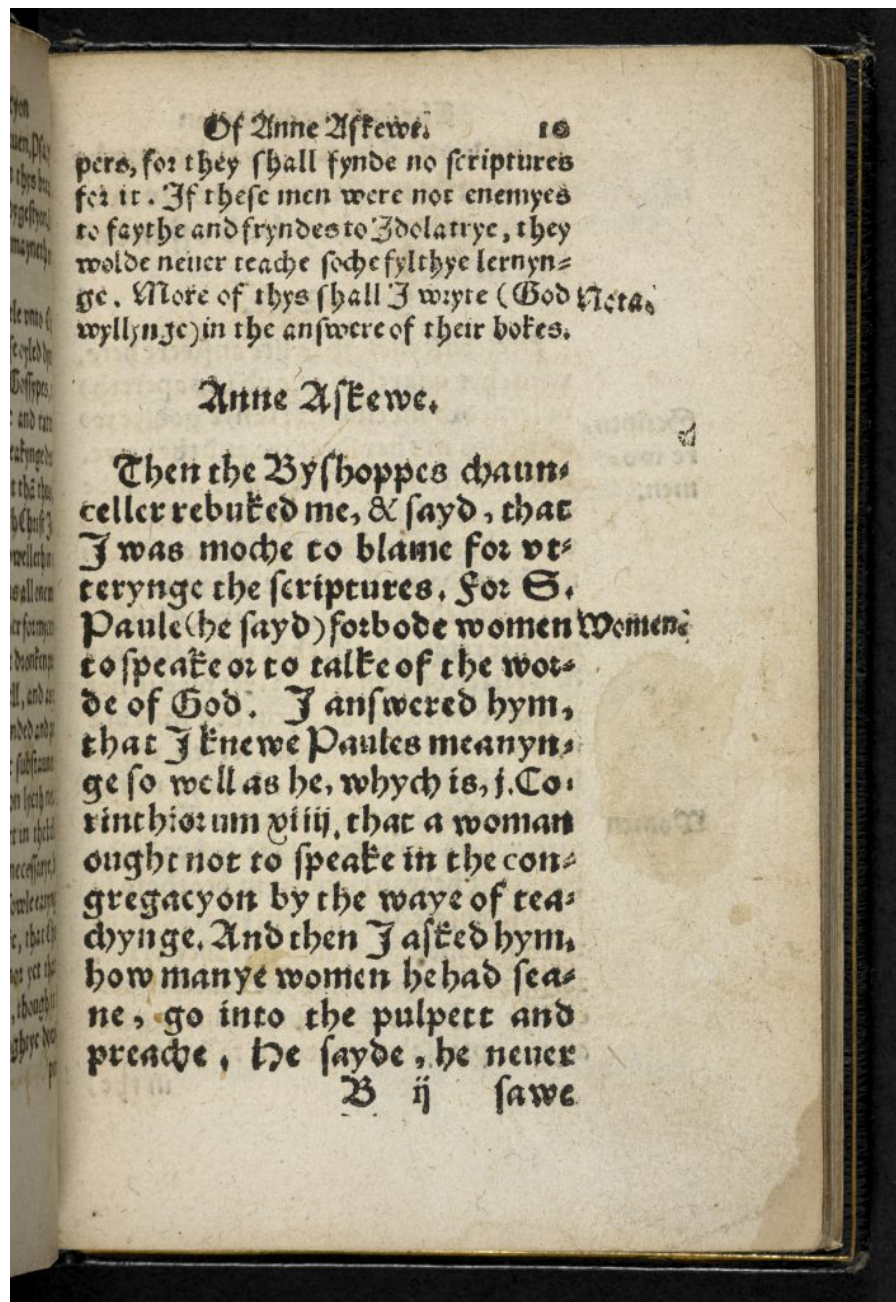 Of Anne Askewe. 10
pers, for they shall fynde no scriptures
for it. If these men were not enemyes
to faythe and fryndes to Idolatrye, they
wolde neuer teache soche fylthye lernyn=
ge. More of thys shall I wryte (God Nota.
wyllynge) in the answere of their bokes.
Anne Askewe.
Then the Byshoppes chaun=
celler rebuked me, & sayd, that
I was moche to blame for vt=
terynge the scriptures. For S.
Paule (he sayd) forbode women Women.
to speake or to talke of the wor=
de of God. I answered hym,
that I knewe Paules meanyn=
ge so well as he, whych is, j. Co=
rinthiorum xiiij. that a woman
ought not to speake in the con=
gregacyon by the waye of tea=
chynge. And then I asked hym,
how manye women he had sea=
ne, go into the pulpett and
preache. He sayde, he neuer
B ij sawe